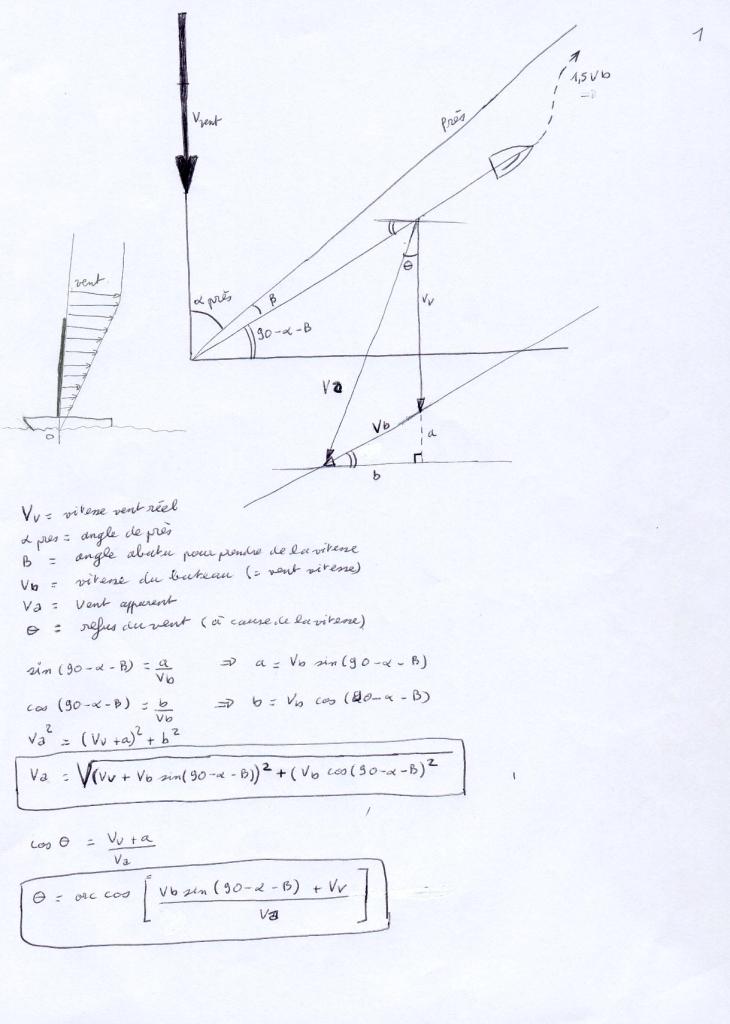 1
V vent
près
1,5 Vb
=>
vent
α près
β
90-α-B
θ
Vv
Va
Vb
a
b
O
Vv = vitesse vent réel
α pres = angle de près
B = angle abatu pour prendre de la vitesse
Vb = vitesse du bateau (= vent vitesse)
Va = Vent apparent
θ = refus du vent (à cause de la vitesse)
sin (90-α-B) = a/Vb => a = Vb sin (90-α-B)
cos (90-α-B) = b/Vb => b = Vb cos (90-α-B)
Va² = (Vv+a)² + b²
Va = √(Vv + Vb sin(90-α-B))² + (Vb cos(90-α-B)²
cos θ = Vv+a/Va
θ = arc cos [Vb sin (90-α-B) + Vv/Va]